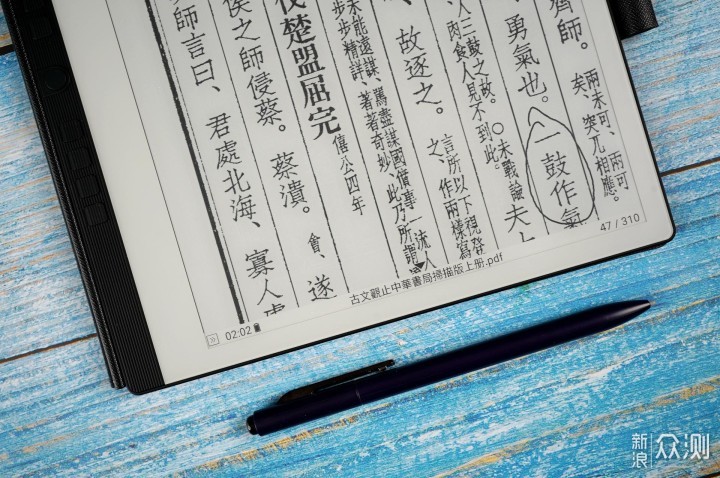 齊師。
兩未可、兩可
矣、突兀相應。
勇氣也。一鼓作氣
人三鼓之故。○未戰論
肉食人見不到此。
夫
故逐之。
言所以下視登
之、作兩樣寫
未能遠謀、罵盡謀國僨事一流人
步步精詳、著著奇妙、此乃所謂
伐楚盟屈完
僖公四年
侯之師侵蔡。蔡潰。
會、遂
師言曰、君處北海、寡人處
47 / 310
古文觀止中華書局掃描版上册.pdf
02:02
新浪众测